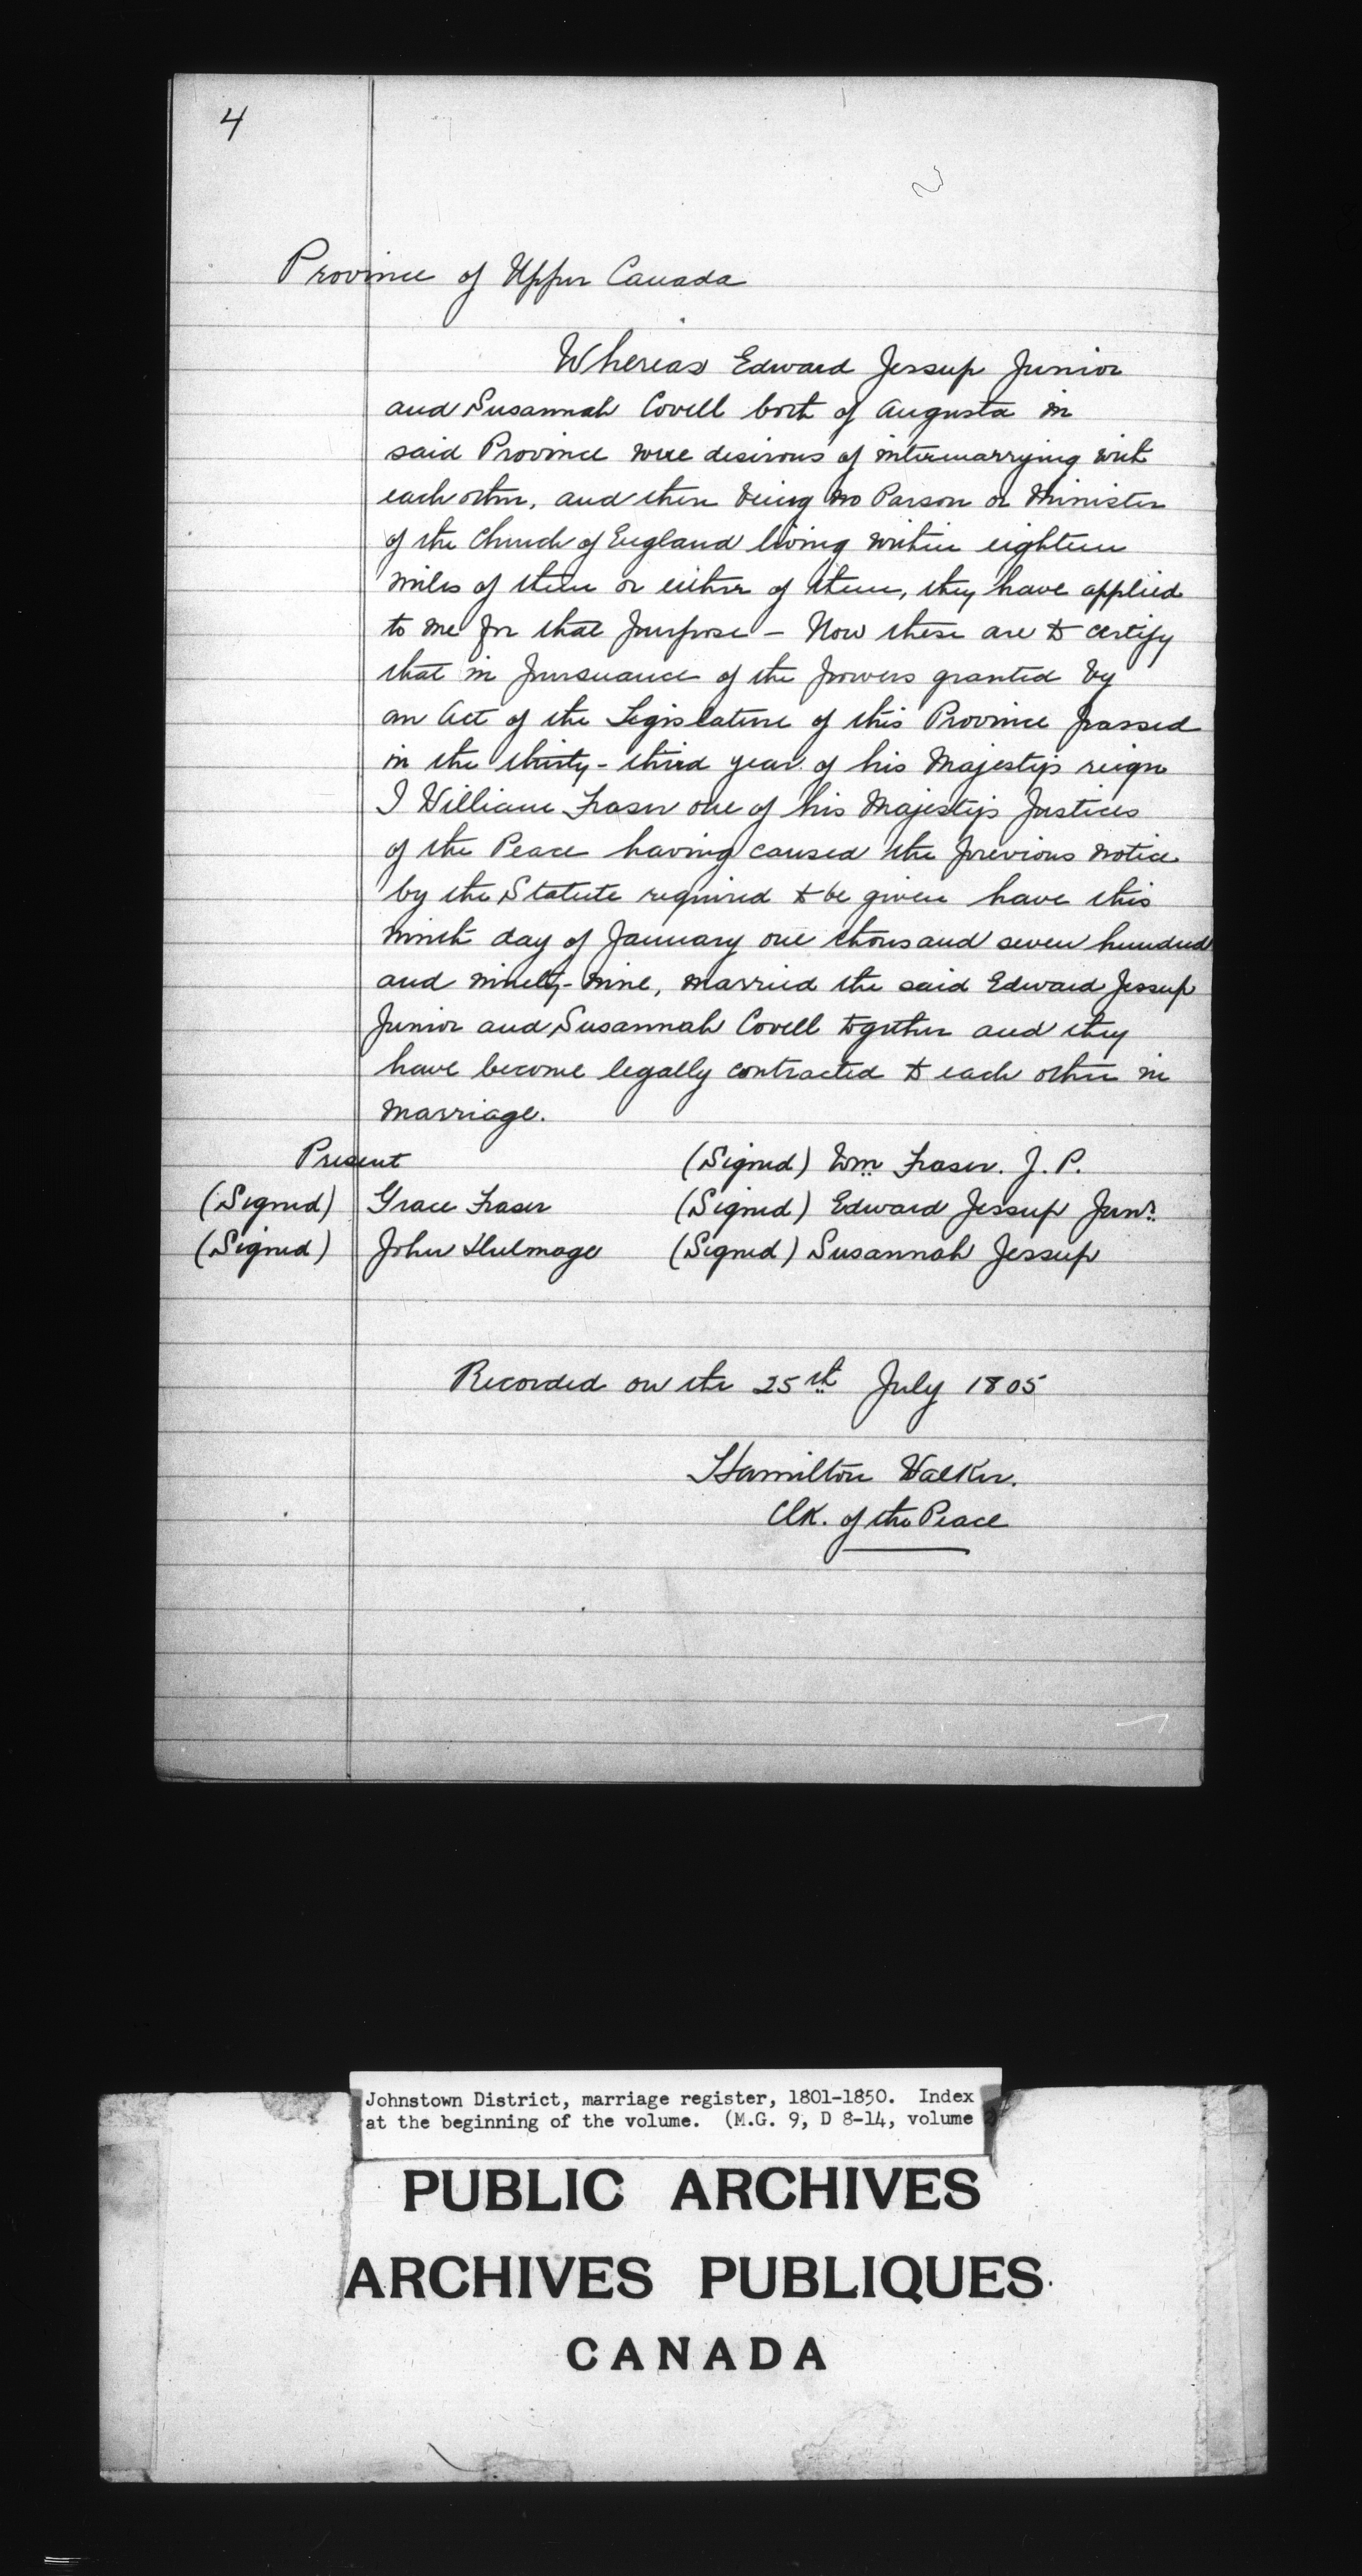 4
Province of Upper Canada
Whereas Edward Jessup Junior
and Susannah Covell both of Augusta in
said Province were desirous of intermarrying with
each other, and there being no Parson or Minister
of the Church of England living within eighteen
miles of them or either of them, they have applied
to me for that purpose - Now these are to certify
that in pursuance of the powers granted by
an Act of the Legislature of this Province passed
in the thirty-third year of his Majesty's reign
I William Fraser one of his Majesty's Justices
of the Peace having caused the previous notice
by the Statute required to be given have this
ninth day of January one thousand seven hundred
and ninety-nine, married the said Edward Jessup
Junior and Susannah Covell together and they
have become legally contracted to each other in
marriage.
Present (Signed) Wm Fraser. J. P.
(Signed) Grace Fraser (Signed) Edward Jessup Junr.
(Signed) John Dulmage (Signed) Susannah Jessup
Recorded on the 25th July 1805
Hamilton Walker.
Clk. of the Peace
Johnstown District, marriage register, 1801-1850. Index
at the beginning of the volume. (M.G. 9, D 8-14, volume
PUBLIC ARCHIVES
ARCHIVES PUBLIQUES
CANADA